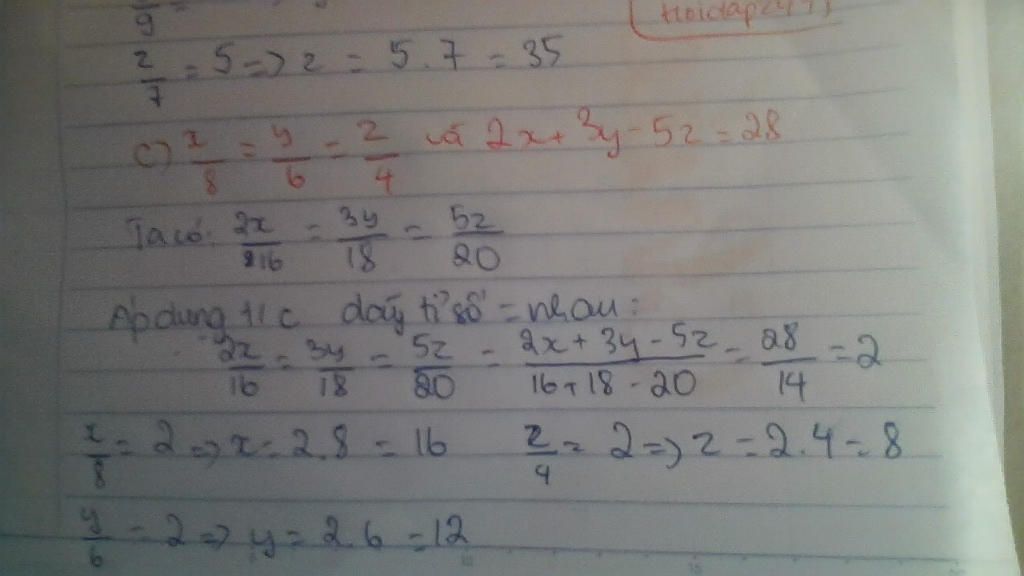 9 =
z/7 = 5 => z = 5 . 7 = 35
c) x/8 = y/6 = z/4 và 2x + 3y - 5z = 28
Ta có: 2x/16 = 3y/18 = 5z/20
Áp dụng t/c dãy tỉ số = nhau:
2x/16 = 3y/18 = 5z/20 = (2x + 3y - 5z)/(16 + 18 - 20) = 28/14 = 2
x/8 = 2 => x = 2.8 = 16 z/4 = 2 => z = 2.4 = 8
y/6 = 2 => y = 2.6 = 12